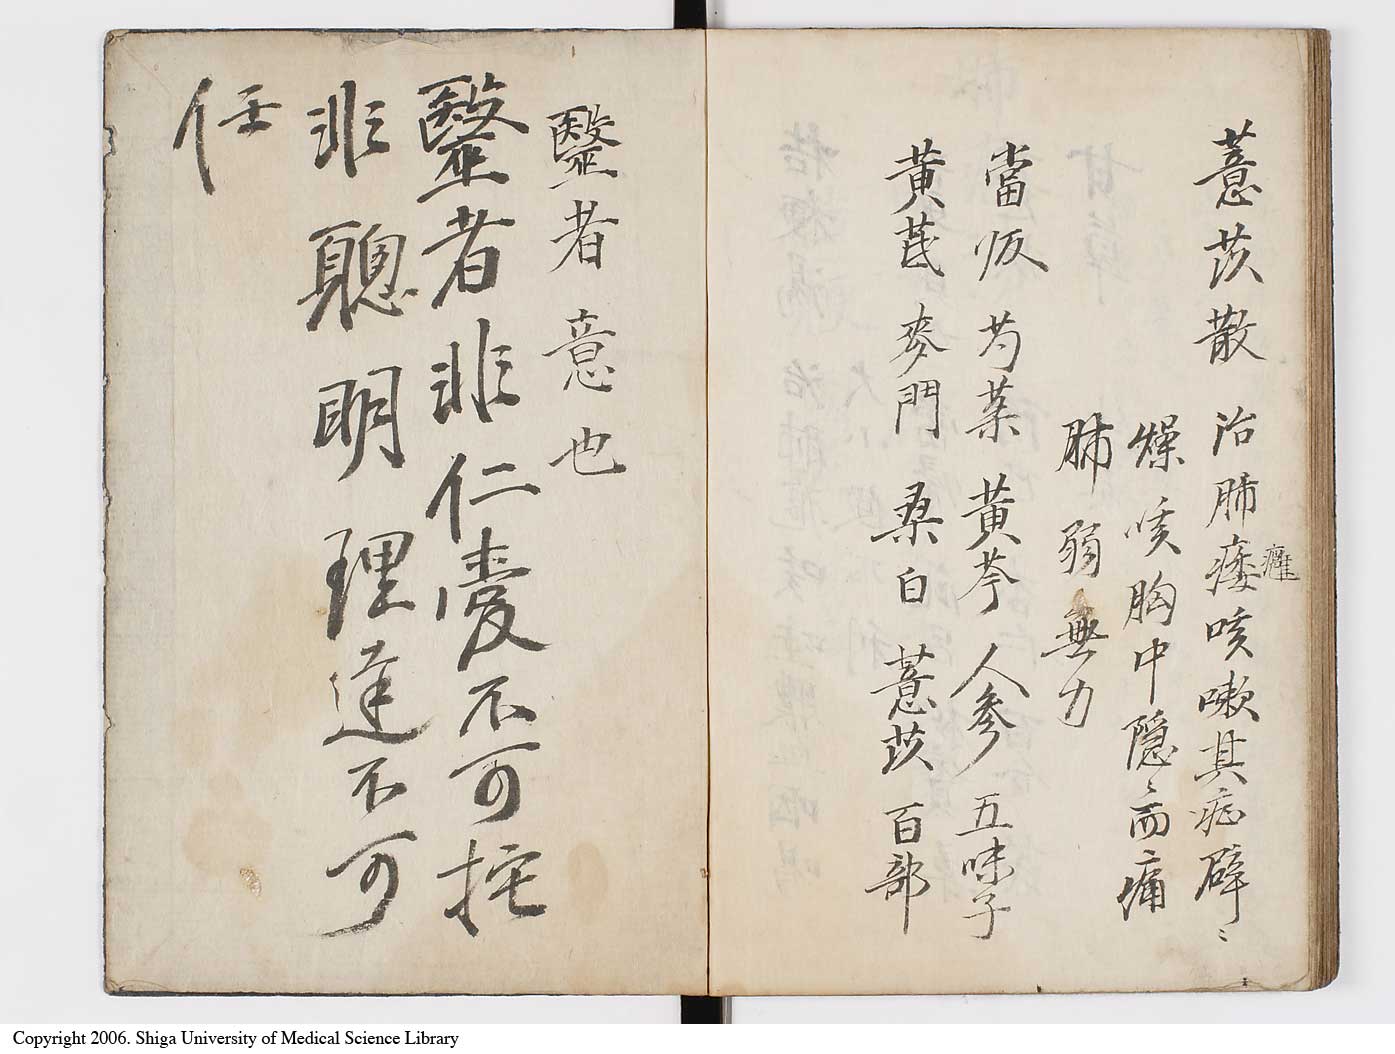 薏苡散 治肺痿咳嗽其症辟〻
癰
燥咳胸中隠〻而痛
肺弱無力
當皈 芍薬 黄芩 人参 五味子
黄芪 麥門 桑白 薏苡 百部
醫者意也
醫者非仁愛不可托
非聰明理達不可
任
Copyright 2006. Shiga University of Medical Science Library